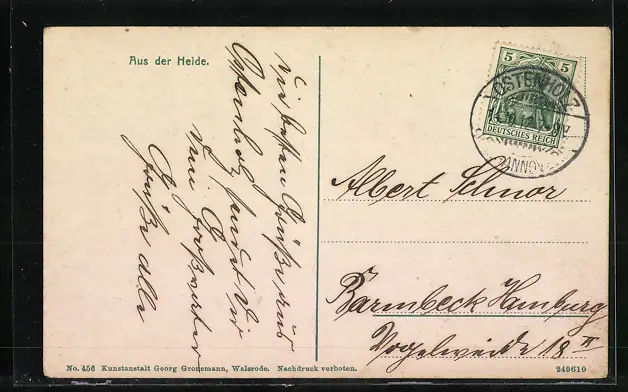 Aus der Heide.
Die besten Grüße aus
Ostenholz sendet Dir
Dein Großvater
Grüße alle
5 5
DEUTSCHES REICH
OSTENHOLZ
HANNOVER
Albert Schnor
Barmbeck Hamburg
Vogelweide 18 II
No. 456 Kunstanstalt Georg Gronemann, Walsrode. Nachdruck verboten.
249610